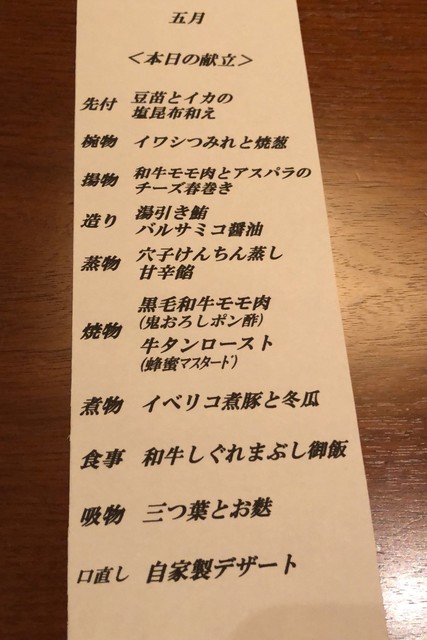 五月
＜本日の献立＞
先付 豆苗とイカの
塩昆布和え
椀物 イワシつみれと焼葱
揚物 和牛モモ肉とアスパラの
チーズ春巻き
造り 湯引き鮪
バルサミコ醤油
蒸物 穴子けんちん蒸し
甘辛餡
焼物 黒毛和牛モモ肉
(鬼おろしポン酢)
牛タンロースト
(蜂蜜マスタード)
煮物 イベリコ煮豚と冬瓜
食事 和牛しぐれまぶし御飯
吸物 三つ葉とお麩
口直し 自家製デザート